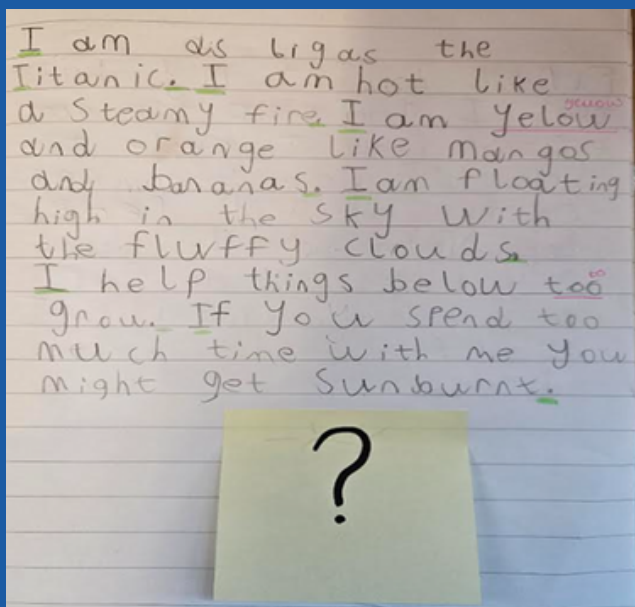 I am as big as the
Titanic. I am hot like
a steamy fire. I am yelow yellow
and orange like mangos
and bananas. I am floating
high in the sky with
the fluffy clouds.
I help things below too to
grow. If you spend too
much time with me you
might get sunburnt.
?